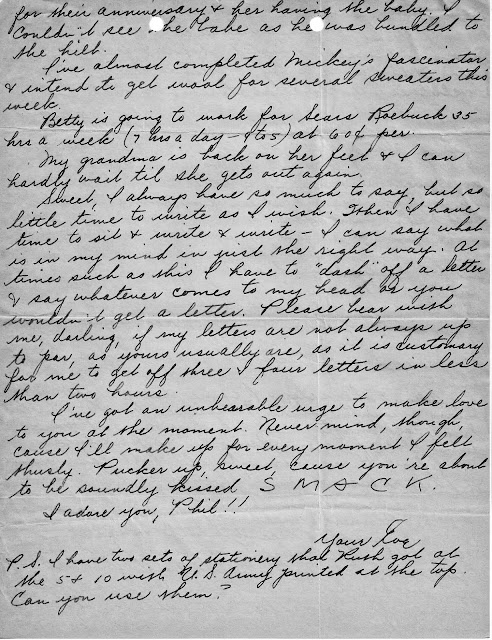 for their anniversary & her having the baby. I
couldn't see the babe as he was bundled to
the hilt.
I've almost completed Mickey's fascinator
& intend to get wool for several sweaters this
week.
Betty is going to work for Sears Roebuck 35
hrs a week (7 hrs a day – to 5) at 60¢ per.
My grandma is back on her feet & I can
hardly wait til she gets out again.
Sweet, I always have so much to say, but so
little time to write as I wish. When I have
time to sit & write & write – I can say what
is in my mind in just the right way. At
times such as this I have to "dash" off a letter
& say whatever comes to my head or you
wouldn't get a letter. Please bear with
me, darling, if my letters are not always up
to par, as yours usually are, as it is customary
for me to get off three & four letters in less
than two hours.
I've got an unbearable urge to make love
to you at the moment. Never mind, though,
cause I'll make up for every moment I felt
thusly. Pucker up, sweet, cause you're about
to be soundly kissed S M A C K.
I adore you, Phil!!
Your Eve
P.S. I have two sets of stationery that Ruth got at
the 5 & 10 with U.S. Army printed at the top.
Can you use them?